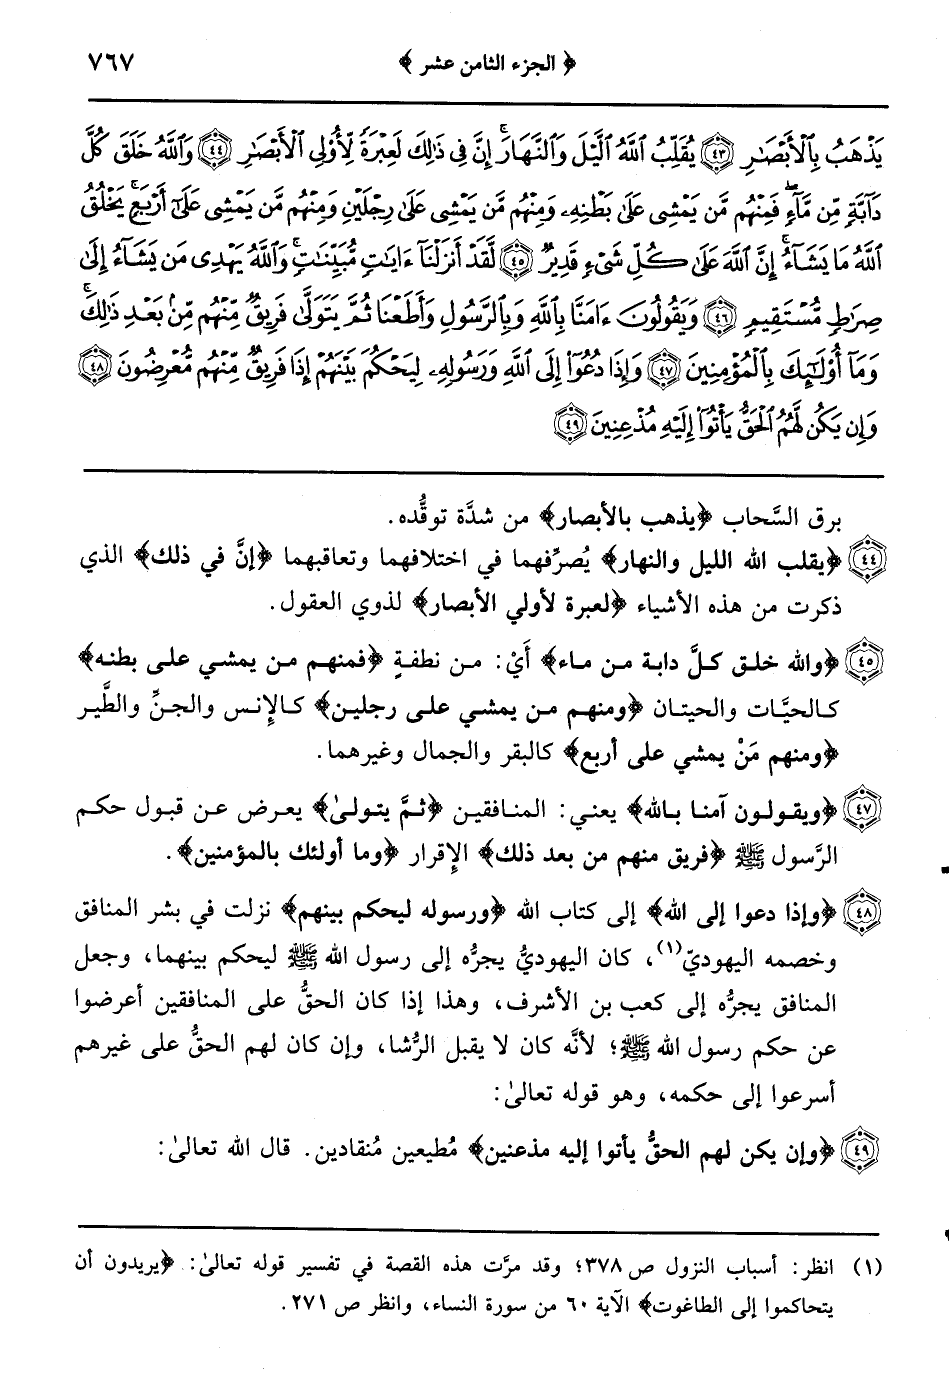 ﴿ الجزء الثامن عشر ﴾ ٧٦٧
يَذْهَبُ بِٱلْأَبْصَٰرِ ﴿٤٣﴾ يُقَلِّبُ ٱللَّهُ ٱلَّيْلَ وَٱلنَّهَارَ ۚ إِنَّ فِى ذَٰلِكَ لَعِبْرَةً لِّأُو۟لِى ٱلْأَبْصَٰرِ ﴿٤٤﴾ وَٱللَّهُ خَلَقَ كُلَّ
دَآبَّةٍ مِّن مَّآءٍ ۖ فَمِنْهُم مَّن يَمْشِى عَلَىٰ بَطْنِهِۦ وَمِنْهُم مَّن يَمْشِى عَلَىٰ رِجْلَيْنِ وَمِنْهُم مَّن يَمْشِى عَلَىٰٓ أَرْبَعٍ ۚ يَخْلُقُ
ٱللَّهُ مَا يَشَآءُ ۚ إِنَّ ٱللَّهَ عَلَىٰ كُلِّ شَىْءٍ قَدِيرٌ ﴿٤٥﴾ لَّقَدْ أَنزَلْنَآ ءَايَٰتٍ مُّبَيِّنَٰتٍ ۚ وَٱللَّهُ يَهْدِى مَن يَشَآءُ إِلَىٰ
صِرَٰطٍ مُّسْتَقِيمٍ ﴿٤٦﴾ وَيَقُولُونَ ءَامَنَّا بِٱللَّهِ وَبِٱلرَّسُولِ وَأَطَعْنَا ثُمَّ يَتَوَلَّىٰ فَرِيقٌ مِّنْهُم مِّنۢ بَعْدِ ذَٰلِكَ ۚ
وَمَآ أُو۟لَٰٓئِكَ بِٱلْمُؤْمِنِينَ ﴿٤٧﴾ وَإِذَا دُعُوٓا۟ إِلَى ٱللَّهِ وَرَسُولِهِۦ لِيَحْكُمَ بَيْنَهُمْ إِذَا فَرِيقٌ مِّنْهُم مُّعْرِضُونَ ﴿٤٨﴾
وَإِن يَكُن لَّهُمُ ٱلْحَقُّ يَأْتُوٓا۟ إِلَيْهِ مُذْعِنِينَ ﴿٤٩﴾
برق السَّحاب ﴿يذهب بالأبصار﴾ من شدَّة توقُّده.
﴿٤٤﴾ ﴿يقلب الله الليل والنهار﴾ يُصرِّفهما في اختلافهما وتعاقبهما ﴿إنَّ في ذلك﴾ الذي
ذكرت من هذه الأشياء ﴿لعبرة لأولي الأبصار﴾ لذوي العقول.
﴿٤٥﴾ ﴿والله خلق كلَّ دابة من ماء﴾ أَيْ: من نطفةٍ ﴿فمنهم من يمشي على بطنه﴾
كالحيَّات والحيتان ﴿ومنهم من يمشي على رجلين﴾ كالإنس والجنِّ والطَّير
﴿ومنهم مَنْ يمشي على أربع﴾ كالبقر والجمال وغيرهما.
﴿٤٧﴾ ﴿ويقولون آمنا بالله﴾ يعني: المنافقين ﴿ثمَّ يتولىٰ﴾ يعرض عن قبول حكم
الرَّسول ﷺ ﴿فريق منهم من بعد ذلك﴾ الإقرار ﴿وما أولئك بالمؤمنين﴾.
﴿٤٨﴾ ﴿وإذا دعوا إلى الله﴾ إلى كتاب الله ﴿ورسوله ليحكم بينهم﴾ نزلت في بشر المنافق
وخصمه اليهوديّ(١)، كان اليهوديُّ يجرُّه إلى رسول الله ﷺ ليحكم بينهما، وجعل
المنافق يجرُّه إلى كعب بن الأشرف، وهذا إذا كان الحقُّ على المنافقين أعرضوا
عن حكم رسول الله ﷺ؛ لأنَّه كان لا يقبل الرُّشا، وإن كان لهم الحقُّ على غيرهم
أسرعوا إلى حكمه، وهو قوله تعالىٰ:
﴿٤٩﴾ ﴿وإن يكن لهم الحقُّ يأتوا إليه مذعنين﴾ مُطيعين مُنقادين. قال الله تعالىٰ:
(١) انظر: أسباب النزول ص ٣٧٨؛ وقد مرَّت هذه القصة في تفسير قوله تعالىٰ: ﴿يريدون أن
يتحاكموا إلى الطاغوت﴾ الآية ٦٠ من سورة النساء، وانظر ص ٢٧١.